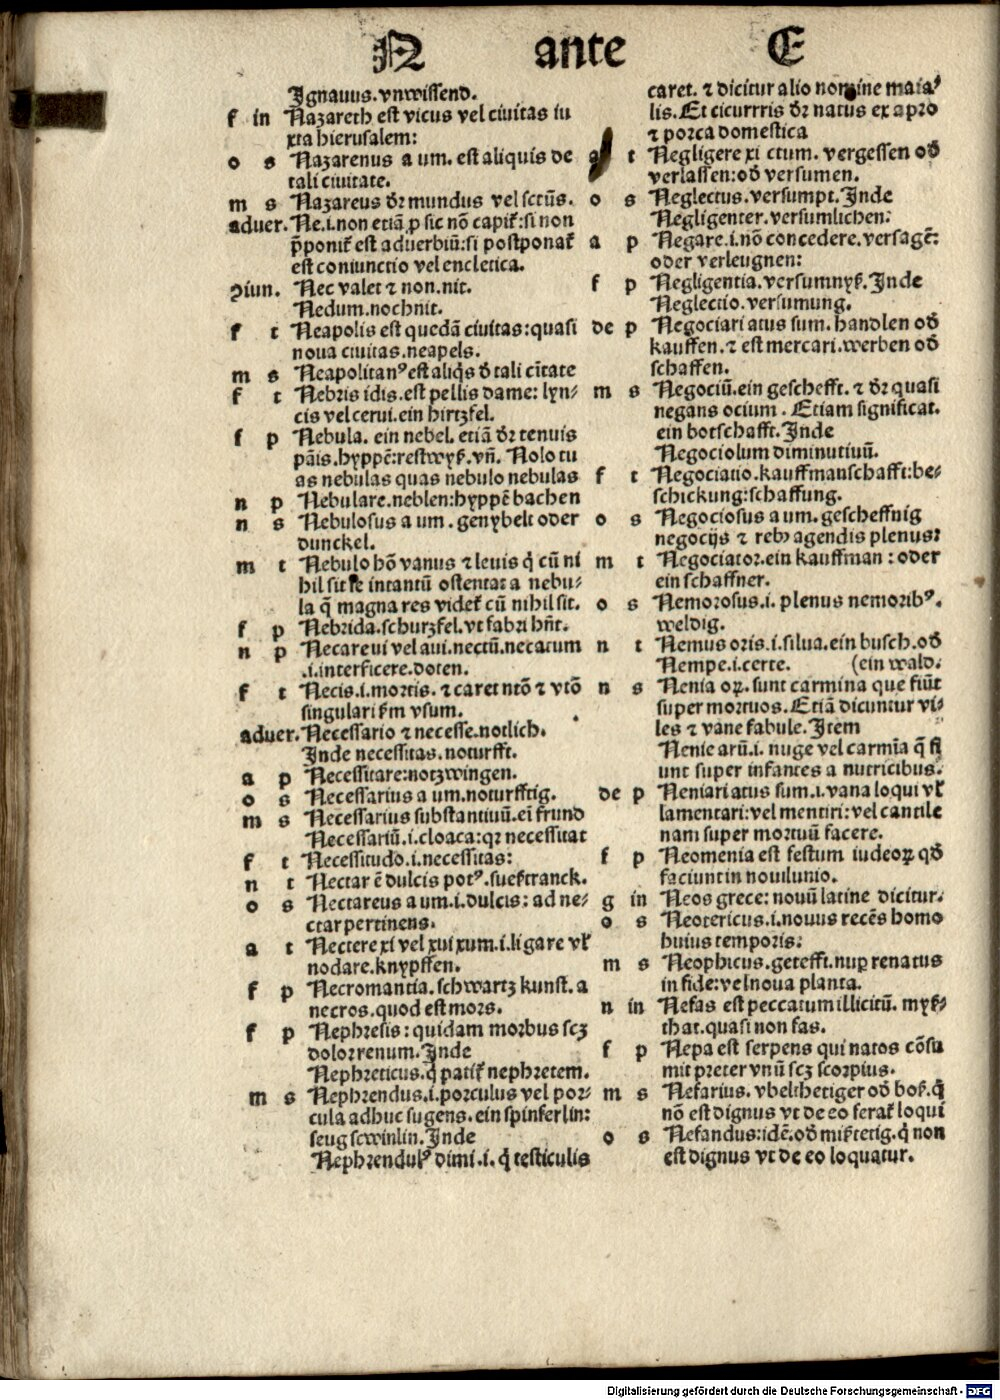 N ante E
Ignauus.vnwissend.
f in Nazareth est vicus vel ciuitas iu
xta hierusalem:
o s Nazarenus a um. est aliquis de
tali ciuitate.
m s Nazareus dr̄ mundus vel sctūs.
aduer. Ne.i.non etiā ꝓ sic nō capit̄:si non
p̄ponit̄ est aduerbiū:si postponat̄
est coniunctio vel encletica.
ꝯiun. Nec valet ⁊ non.nit.
Nedum.nochnit.
f t Neapolis est quedā ciuitas:quasi
noua ciuitas.neapels.
m s Neapolitanꝰ est aliqͥs đ tali cīitate
f t Nebris idis.est pellis dame: lyn-
cis vel cerui.ein hirtzfel.
f p Nebula. ein nebel. etiā dr̄ tenuis
pāis.hyppē:restwyß.vn̄. Nolo tu
as nebulas quas nebulo nebulas
n p Nebulare.neblen:hyppē bachen
n s Nebulosus a um. genybelt oder
dunckel.
m t Nebulo hō vanus ⁊ leuis q̇ cū ni
hil sit se intantū ostentat a nebu-
la q̄ magna res videt̄ cū nihil sit.
f p Nebrida.schurzfel.vt fabri hn̄t.
n p Necare ui vel aui.nectū.necatum
.i.interficere.doten.
f t Necis.i.mortis. ⁊ caret ntō ⁊ vtō
singulari ẜm vsum.
aduer. Necessario ⁊ necesse.notlich.
Inde necessitas.noturfft.
a p Necessitare:notzwingen.
o s Necessarius a um.noturfftig.
m s Necessarius substantiuū.eī frund
Necessariū.i.cloaca:qꝛ necessitat
f t Necessitudo.i.necessitas:
n t Nectar ē dulcis potꝰ.sueßtranck.
o s Nectareus a um.i.dulcis: ad ne-
ctar pertinens.
a t Nectere xi vel xui xum.i.ligare vƚ
nodare.knypffen.
f p Necromantia.schwartz kunst. a
necros.quod est mors.
f p Nephresis: quidam morbus scꝫ
dolor renum. Inde
Nephreticus.q̇ patit̄ nephretem.
m s Nephrendus.i.porculus vel por-
cula adhuc sugens. ein spinferlin:
seug scwinlin. Inde
Nephrendulꝰ dimi.i. q̇ testiculis
caret. ⁊ dicitur alio nomine maiaƚ
lis. Et cicurrris dr̄ natus ex apro
⁊ porca domestica
a t Negligere xi ctum. vergessen oď
verlassen:oď versumen.
o s Neglectus.versumpt. Inde
Negligenter.versumlichen:
a p Negare.i.nō concedere.versagē:
oder verleugnen:
f p Negligentia.versumnyß. Inde
Neglectio.versumung.
de p Negociari atus sum. handlen oď
kauffen. ⁊ est mercari.werben oď
schaffen.
m s Negociū.ein geschefft. ⁊ dr̄ quasi
negans ocium. Etiam significat.
ein botschafft. Inde
Negociolum diminutiuū.
f t Negociatio.kauffmanschafft:be-
schickung:schaffung.
o s Negociosus a um. gescheffnig
negocijs ⁊ rebꝰ agendis plenus:
m t Negociator.ein kauffman: oder
ein schaffner.
o s Nemorosus.i. plenus nemoribꝰ.
weldig.
n t Nemus oris.i.silua.ein busch.oď
Nempe.i.certe. (ein wald.
n s Nenia oꝝ. sunt carmina que fiūt
super mortuos. Etiā dicuntur vi-
les ⁊ vane fabule. Item
Nenie arū.i. nuge vel carmīa q̄ fi
unt super infantes a nutricibus.
de p Neniari atus sum.i.vana loqui vƚ
lamentari:vel mentiri:vel cantile
nam super mortuū facere.
f p Neomenia est festum iudeoꝝ qď
faciunt in nouilunio.
g in Neos grece: nouū latine dicitur.
o s Neotericus.i.nouus recēs homo
huius temporis:
m s Neophicus.getefft.nuꝑ renatus
in fide:vel noua planta.
n in Nefas est peccatum illicitū. myß-
that.quasi non fas.
f p Nepa est serpens qui natos cōsu
mit preter vnū scꝫ scorpius.
m s Nefarius. vbelthetiger oď boß.q̇
nō est dignus vt de eo ferat̄ loqui
o s Nefandus:idē.oď mißtetig.q̇ non
est dignus vt de eo loquatur.
Digitalisierung gefördert durch die Deutsche Forschungsgemeinschaft - DFG